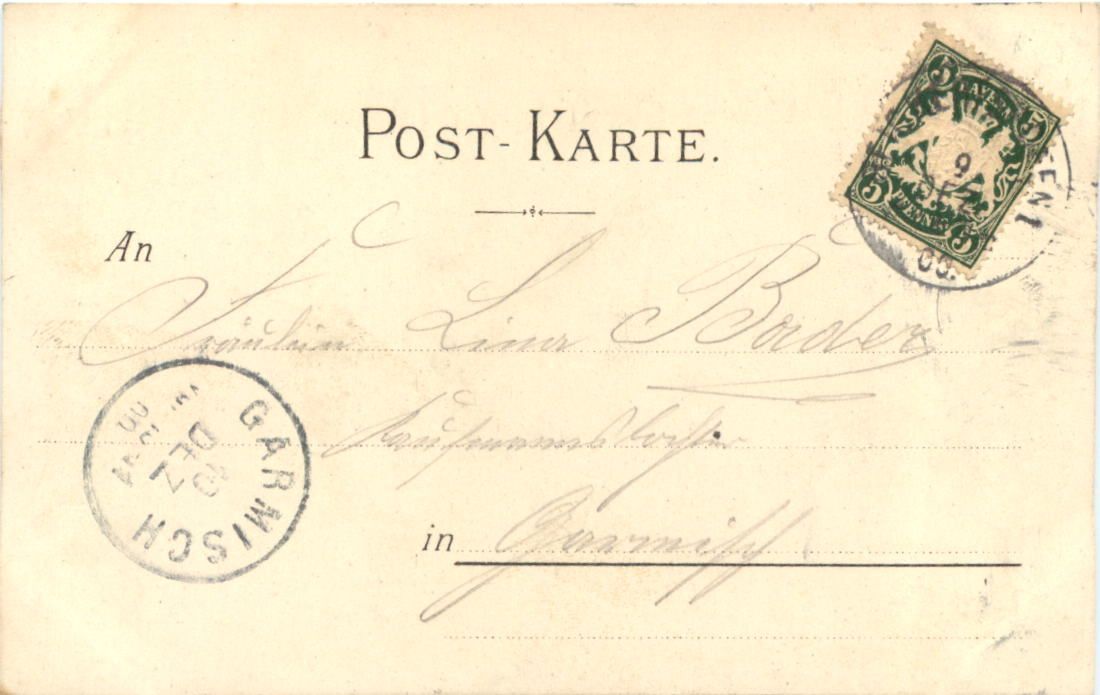 POST-KARTE.
5 BAYERN 5
9
DEZ
5 PFENNIG 5
00.
An
Fräulein Lina Bader
Kaufmannstochter
GARMISCH
10
DEZ
in Garmisch